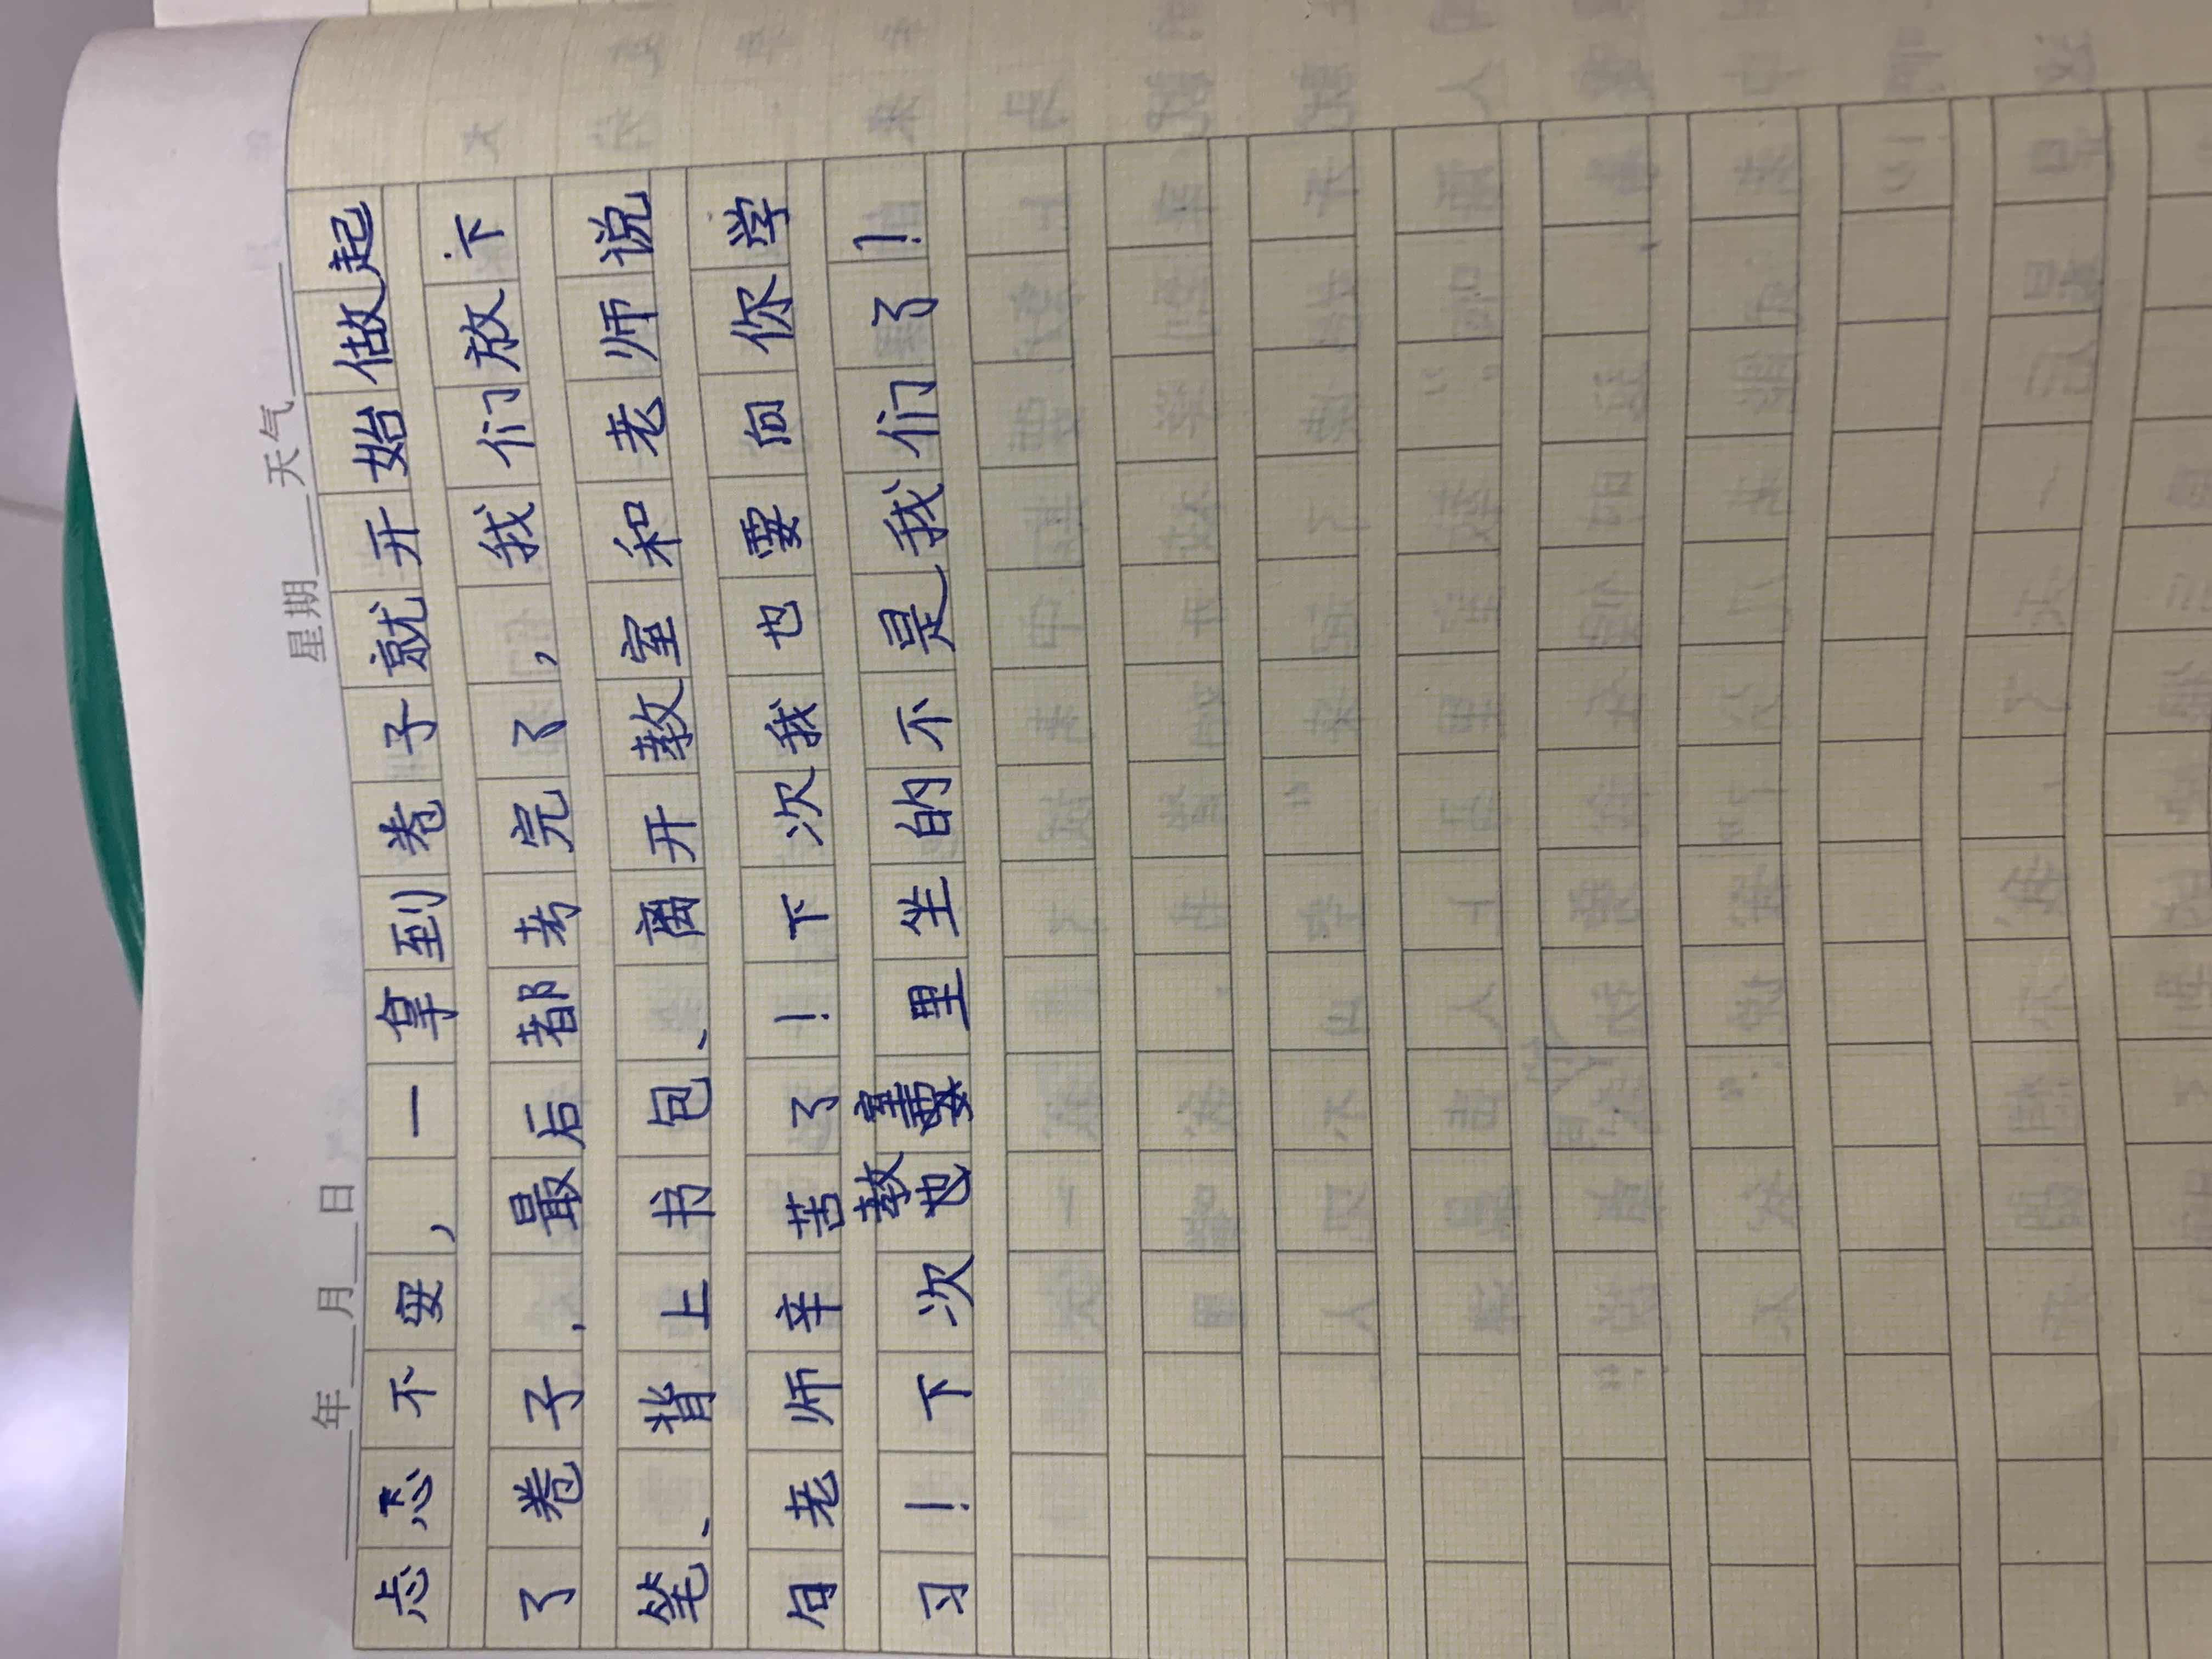 年 月 日 星期 天气
忐忑不安，一拿到卷子就开始做起
了卷子，最后都考完了，我们放下
笔、背上书包、离开教室和老师说
句老师辛苦了！下次我也要向你学
习！下次教室里坐的不是我们了！